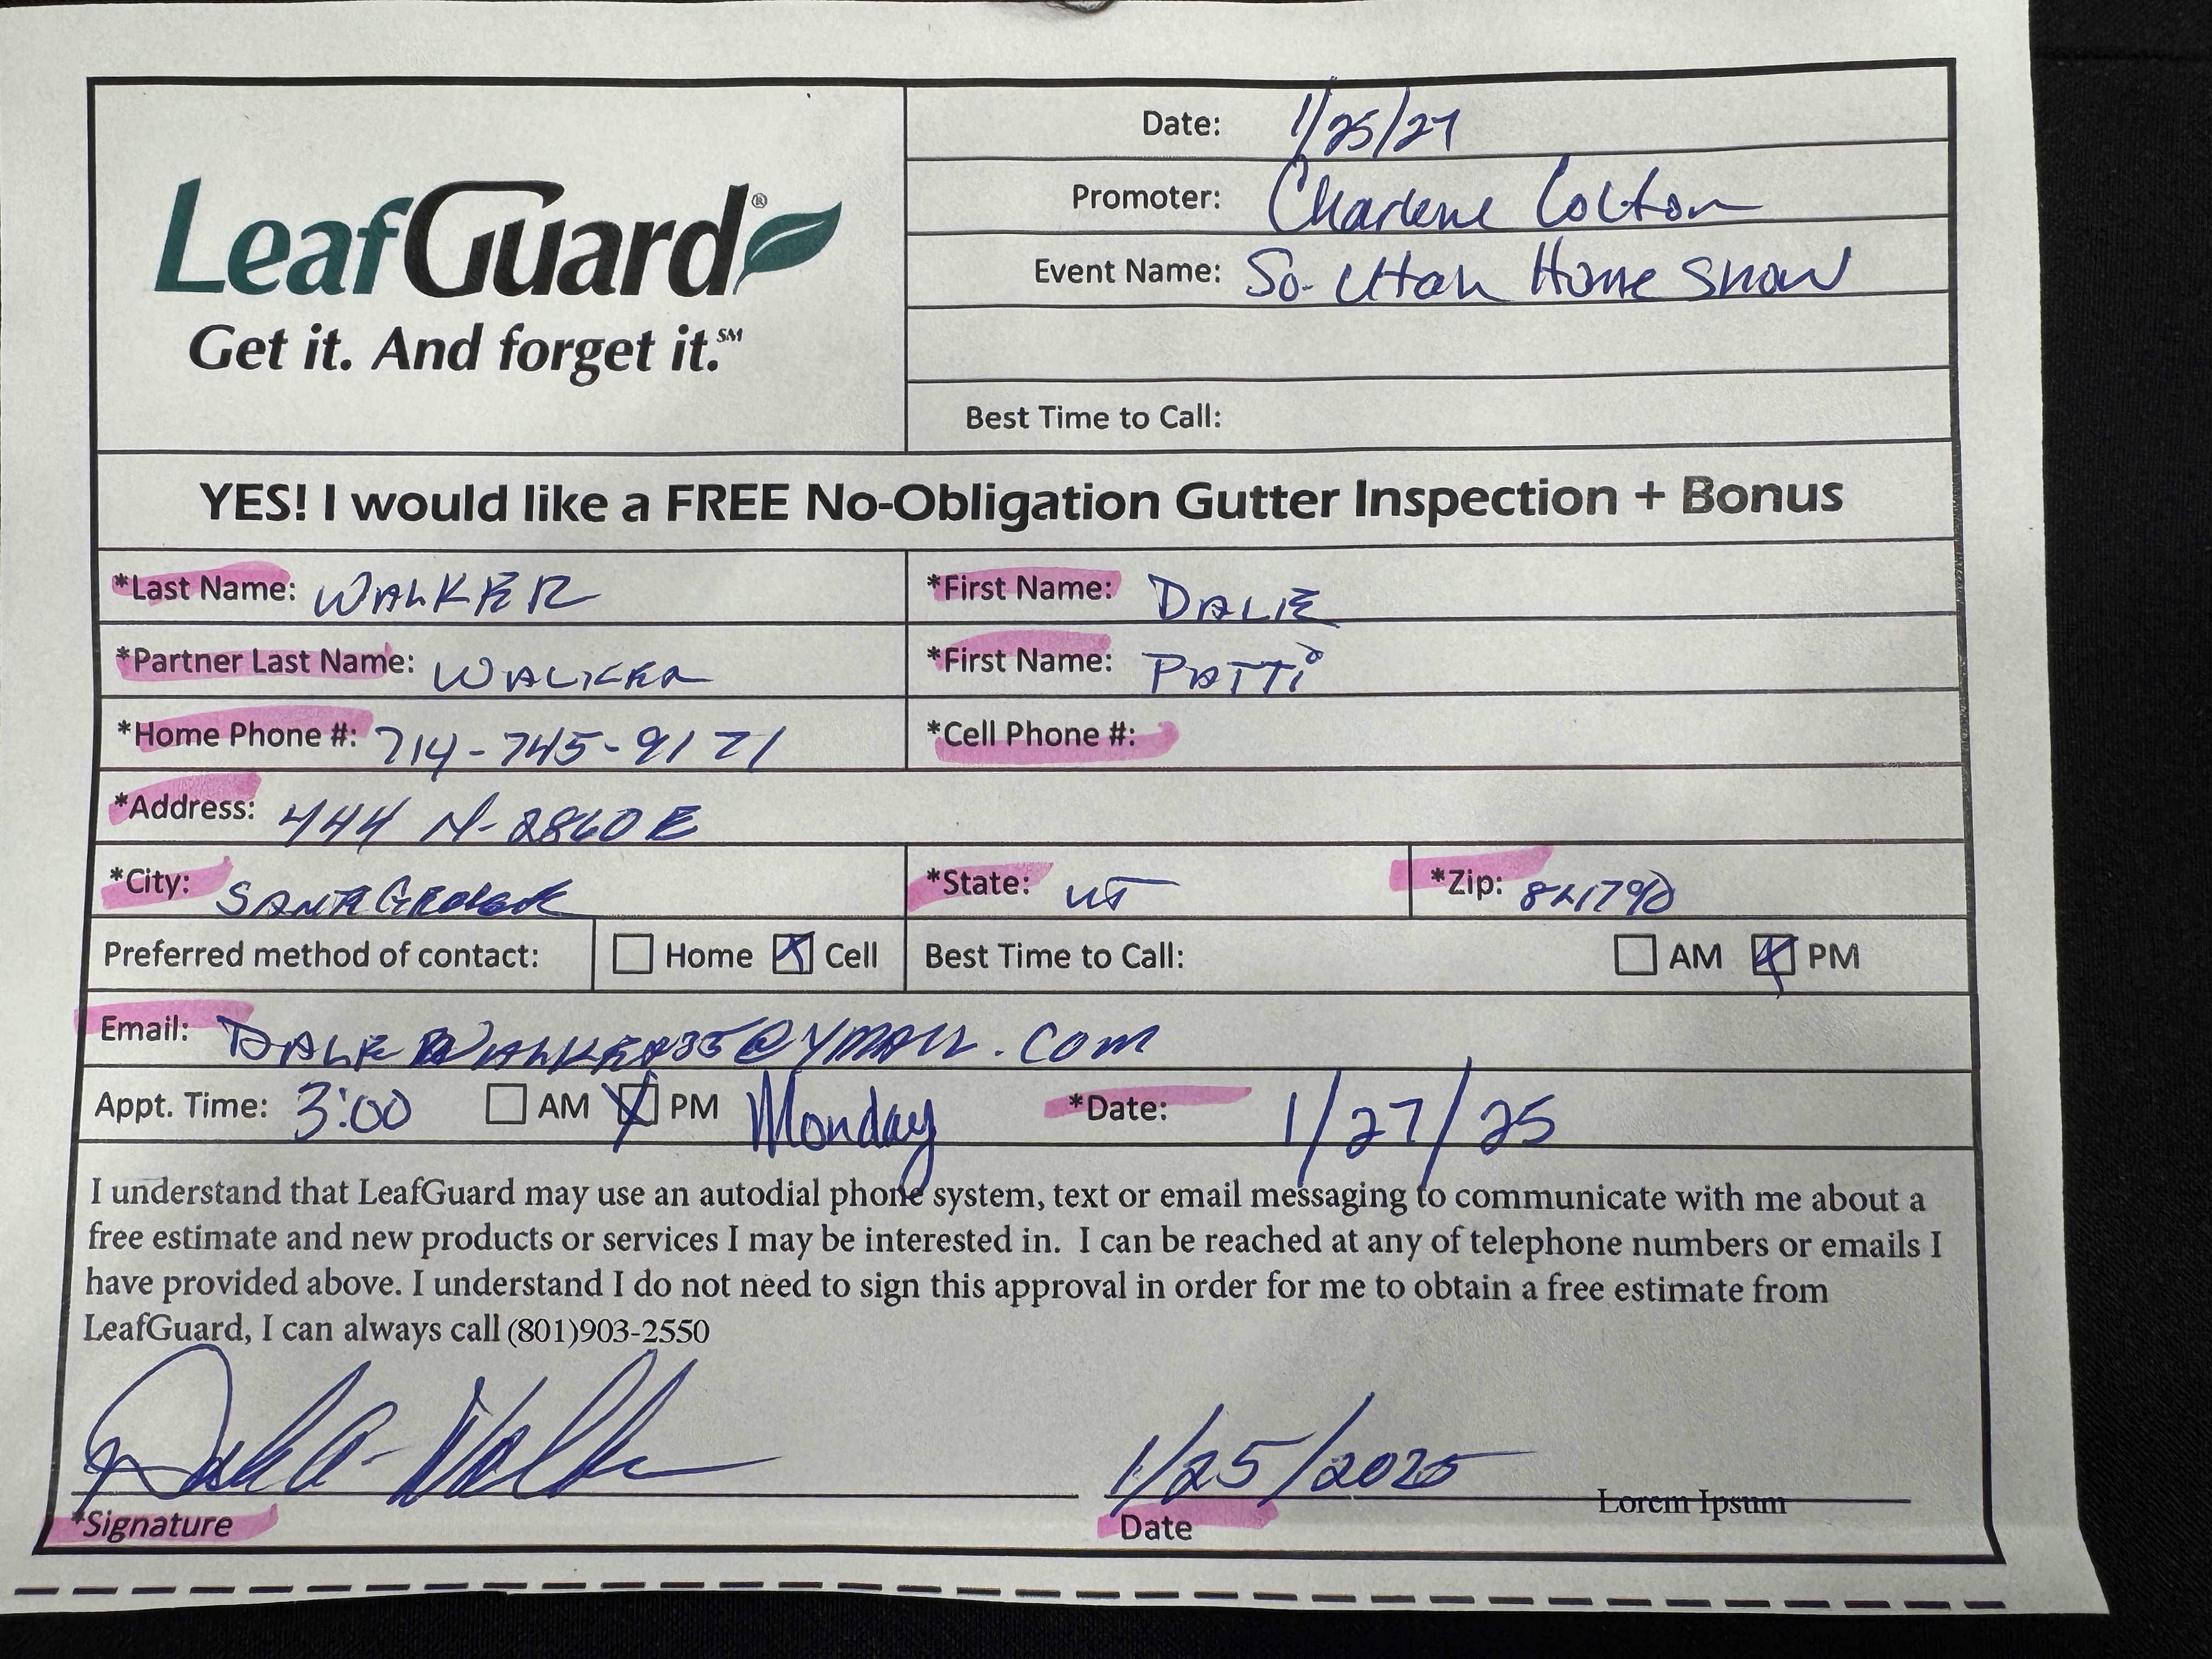 LeafGuard®
Get it. And forget it.℠
Date: 1/25/27
Promoter: Charlene Colton
Event Name: So. Utah Home Show
Best Time to Call:
YES! I would like a FREE No-Obligation Gutter Inspection + Bonus
*Last Name: WALKER *First Name: DALE
*Partner Last Name: WALKER *First Name: PATTI
*Home Phone #: 714-745-9171 *Cell Phone #:
*Address: 444 N- 2860 E
*City: *State: UT *Zip:
Preferred method of contact: Home Cell Best Time to Call: AM PM
Email:
Appt. Time: 3:00 AM PM Monday *Date: 1/27/25
I understand that LeafGuard may use an autodial phone system, text or email messaging to communicate with me about a
free estimate and new products or services I may be interested in. I can be reached at any of telephone numbers or emails I
have provided above. I understand I do not need to sign this approval in order for me to obtain a free estimate from
LeafGuard, I can always call (801)903-2550
1/25/2025
Lorem Ipsum
*Signature Date